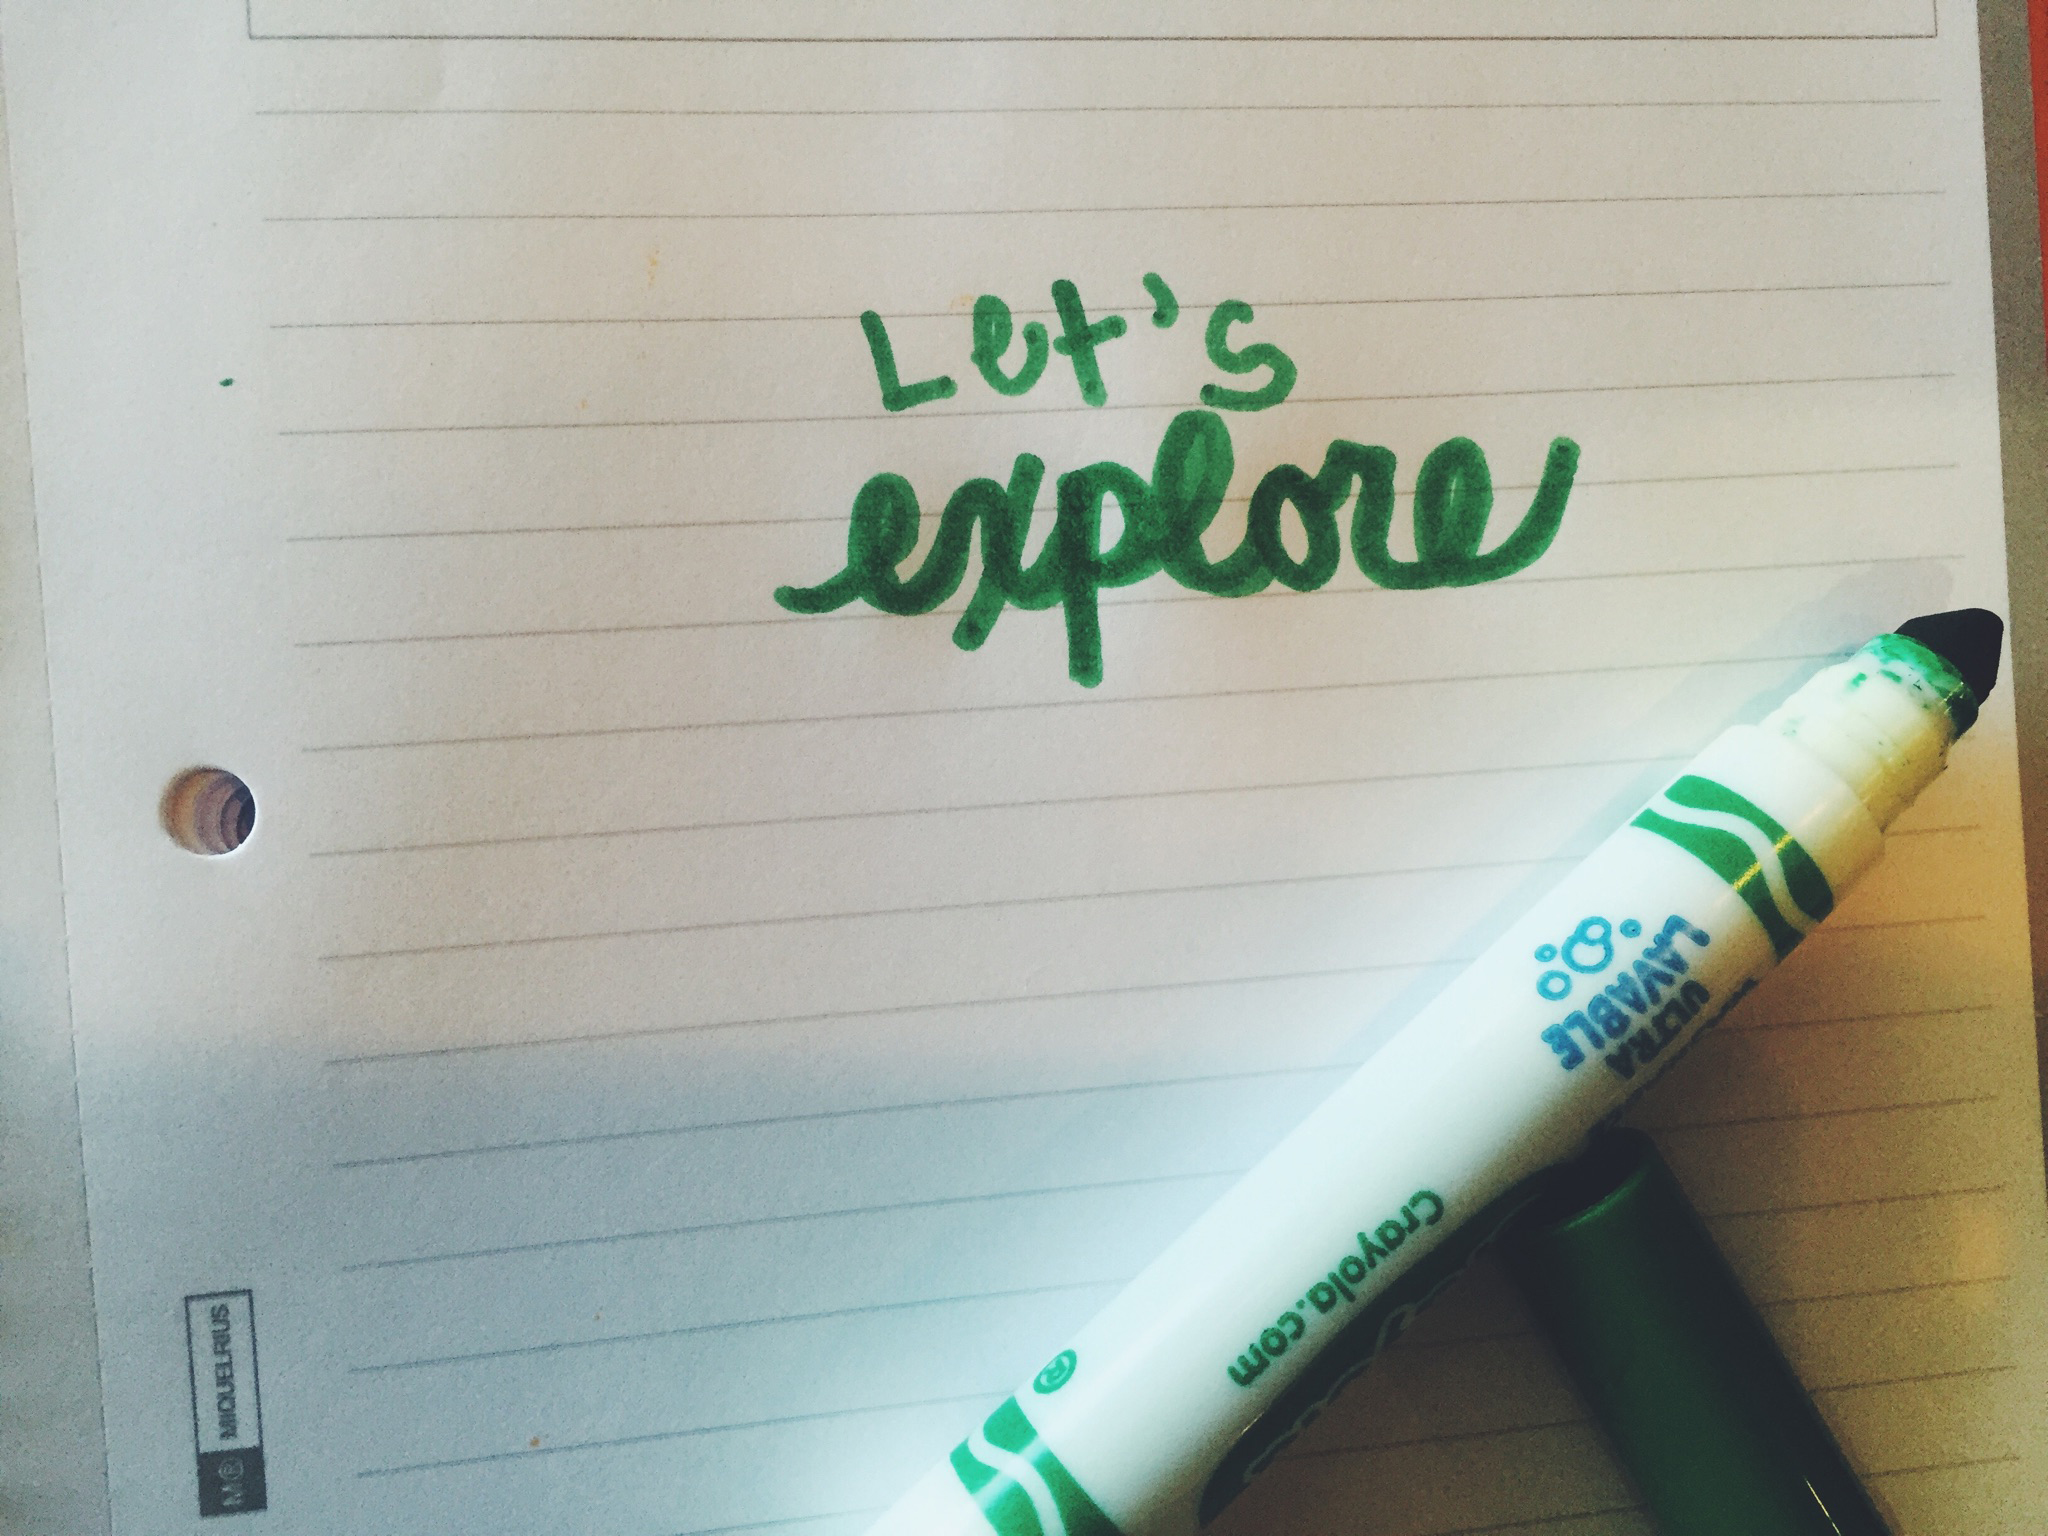 Let's
explore
ULTRA
LAVABLE
Crayola.com
®
M® MIQUELRIUS